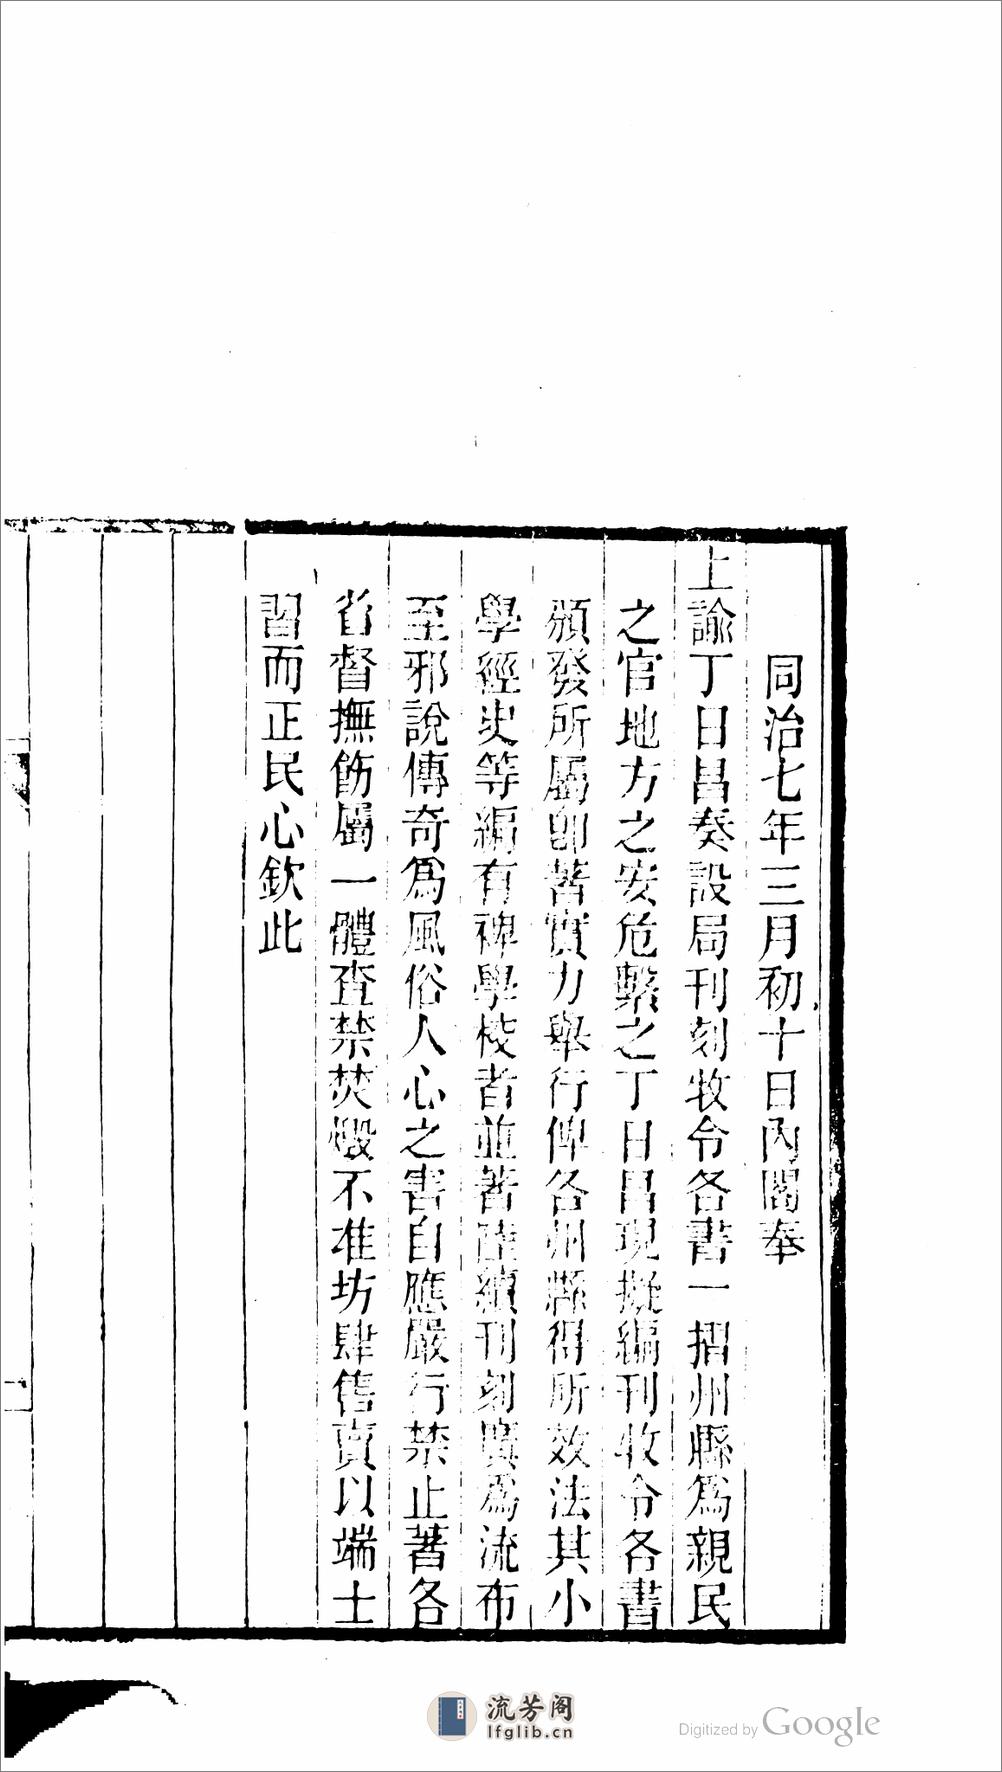 同治七年三月初十日內閣奉
上諭丁日昌奏設局刊刻牧令各書一摺州縣爲親民
之官地方之安危繫之丁日昌現擬編刊牧令各書
頒發所屬卽著實力舉行俾各州縣得所效法其小
學經史等編有裨學校者並著陸續刊刻廣爲流布
至邪說傳奇爲風俗人心之害自應嚴行禁止著各
省督撫飭屬一體查禁焚燬不准坊肆售賣以端士
習而正民心欽此
流芳阁
lfglib.cn
Digitized by Google